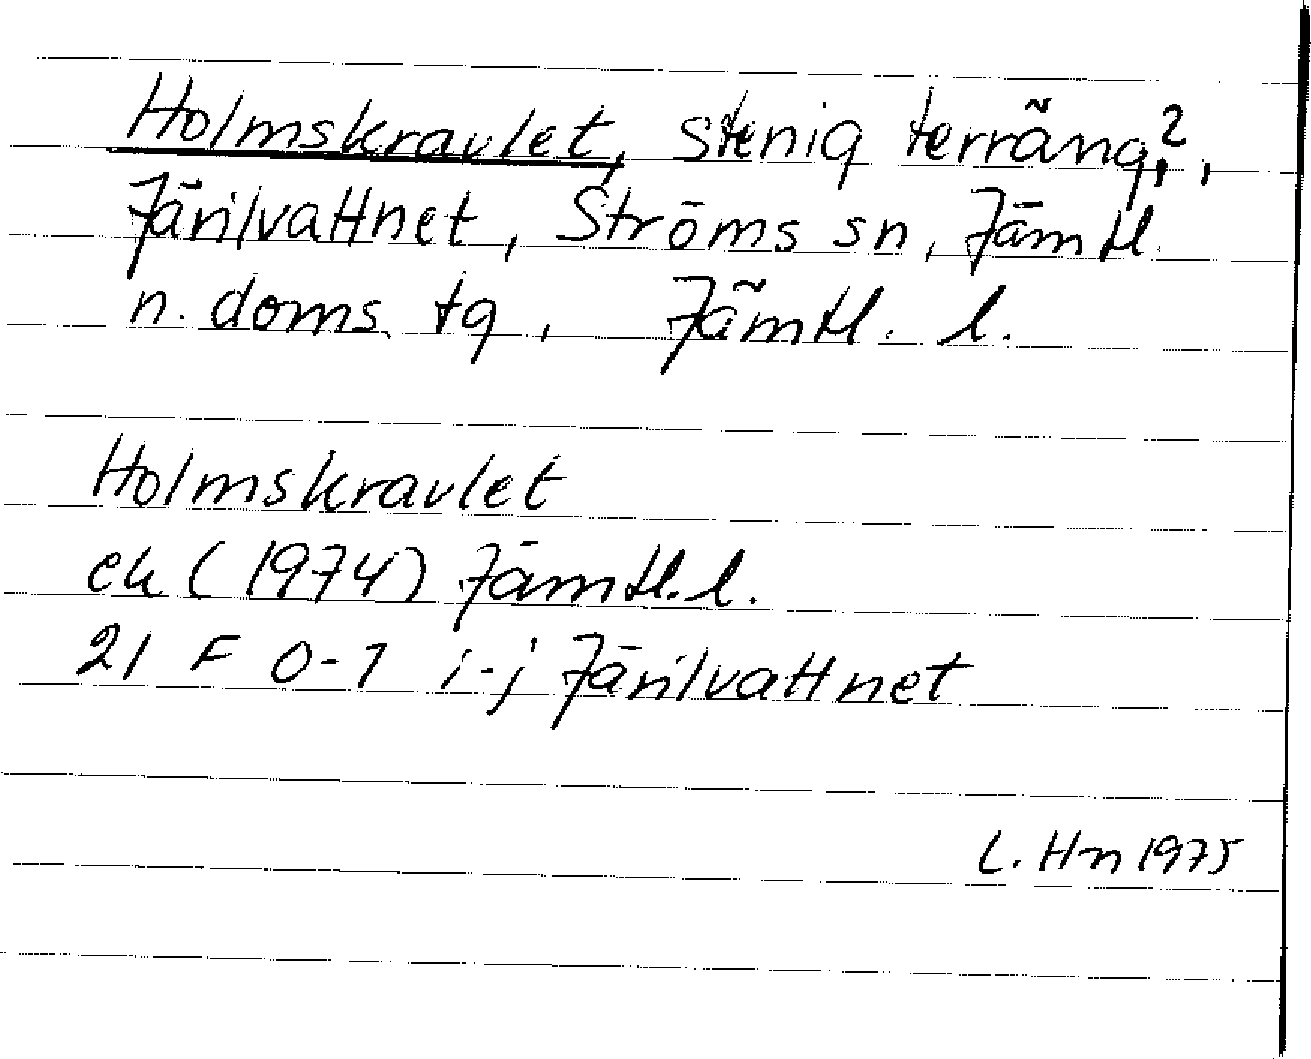 Holmskravlet, stenig terräng?,
Järilvattnet, Ströms sn, Jämtl.
n. doms. tg, Jämtl. l.
Holmskravlet
ek (1974) Jämtl. l.
21 F 0-1 i-j Järilvattnet
L. Hn 1975